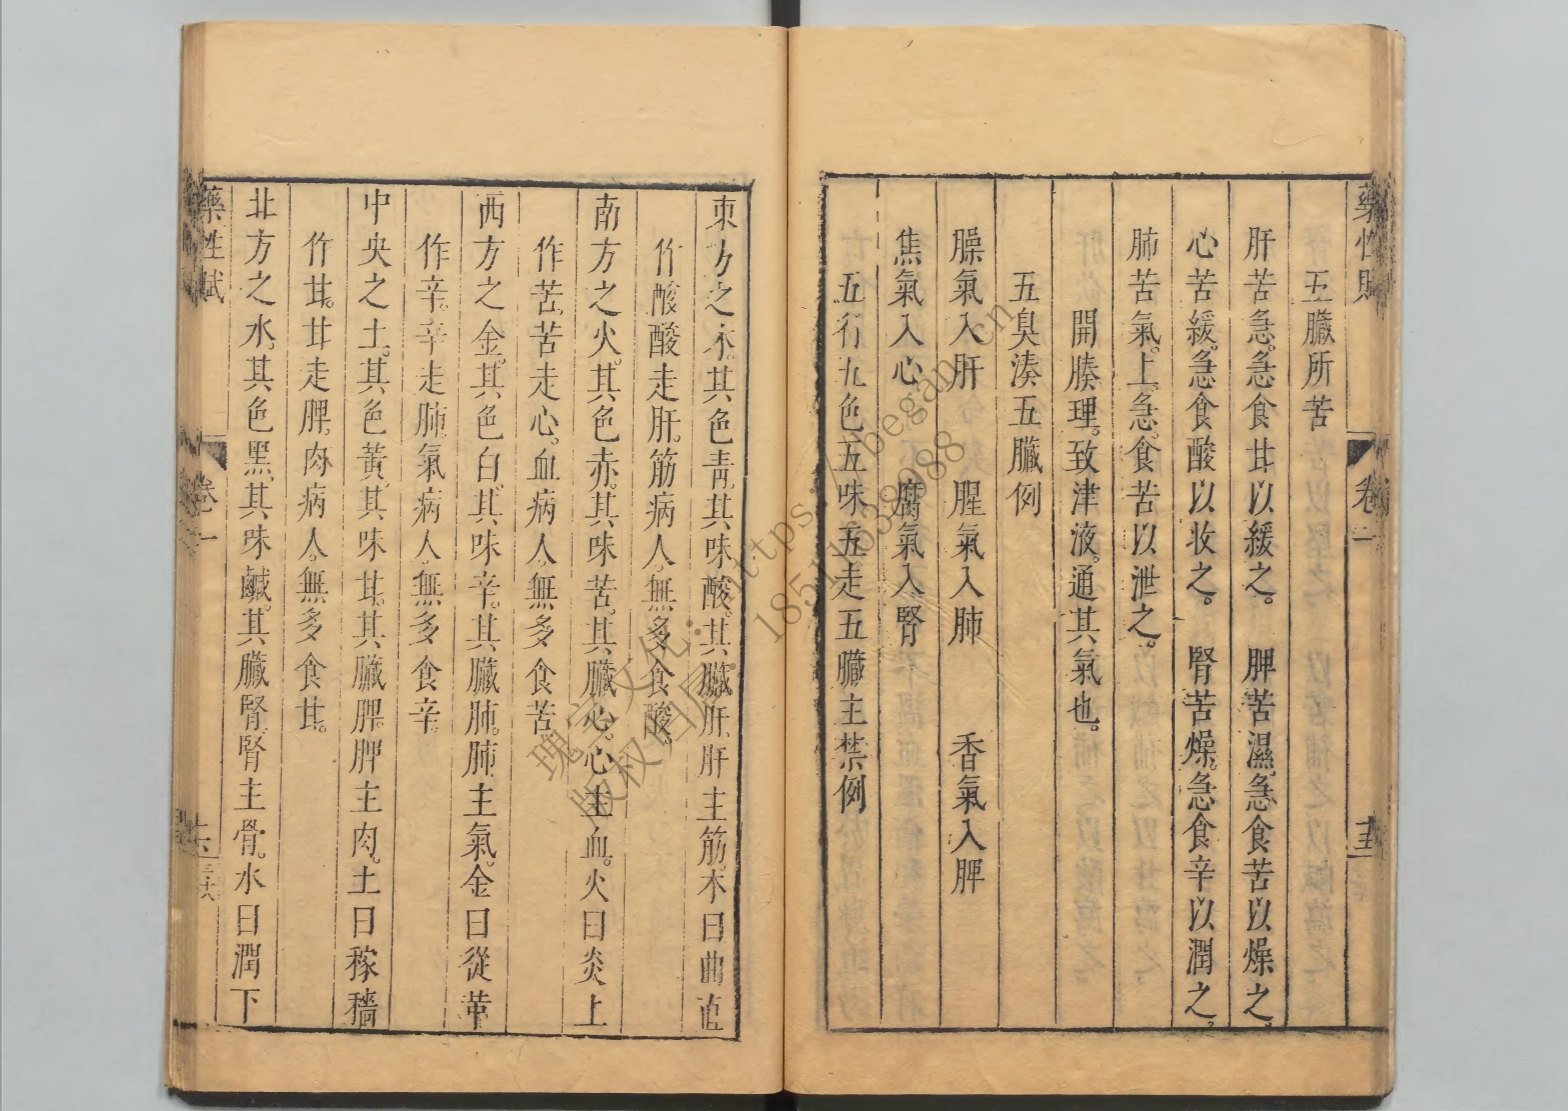 藥性賦
卷一
五臟所苦
肝苦急。急食甘以緩之。 脾苦濕。急食苦以燥之。
心苦緩。急食酸以收之。 腎苦燥。急食辛以潤之。
肺苦氣。上急。食苦以泄之。
開腠理。致津液。通其氣也。
五臭湊五臟例
臊氣入肝 腥氣入肺 香氣入脾
焦氣入心 腐氣入腎
五行五色五味五走五臟主禁例
東方之木。其色青。其味酸。其臟肝。肝主筋。木曰曲直
作酸。酸走肝。筋病人。無多食酸。
南方之火。其色赤。其味苦。其臟心。心主血。火曰炎上
作苦。苦走心。血病人。無多食苦。
西方之金。其色白。其味辛。其臟肺。肺主氣。金曰從革
作辛。辛走肺。氣病人。無多食辛。
中央之土。其色黃。其味甘。其臟脾。脾主肉。土曰稼穡
作甘。甘走脾。肉病人。無多食甘。
北方之水。其色黑。其味鹹。其臟腎。腎主骨。水曰潤下
藥性賦
卷一